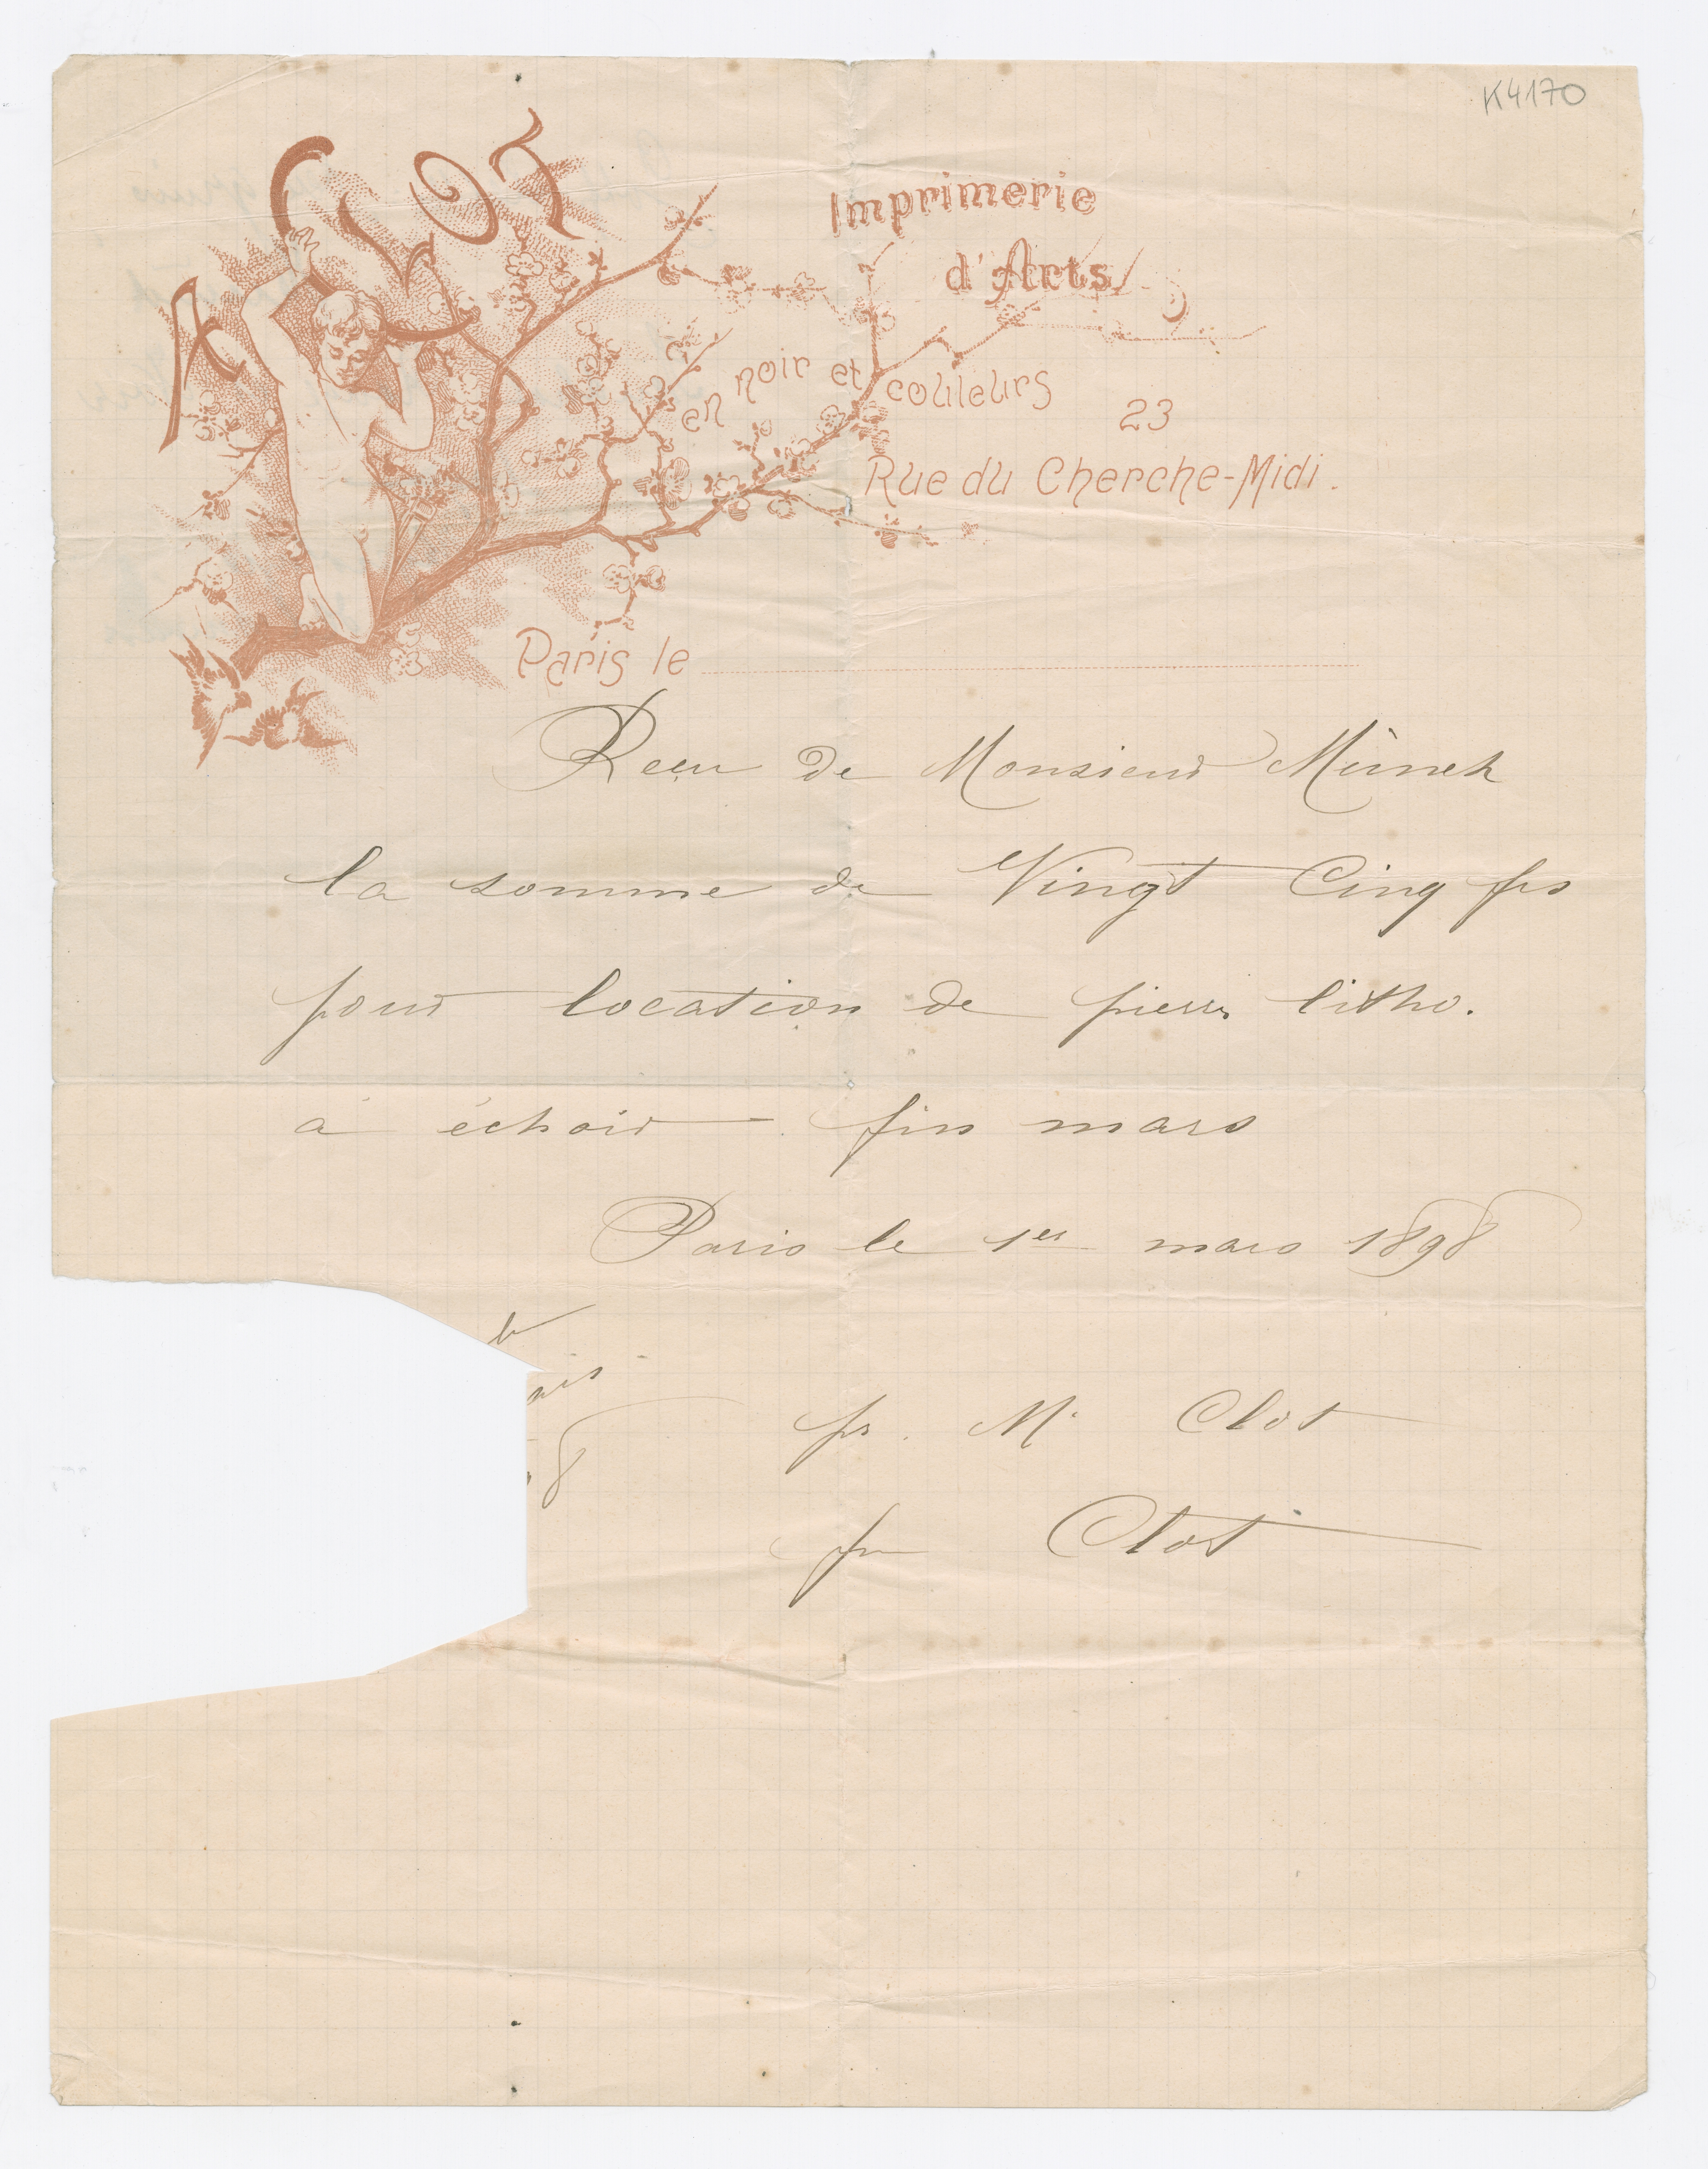 K4170
A CLOT
Imprimerie
d'Arts
en noir et couleurs
23
Rue du Cherche-Midi.
Paris le
Reçu de Monsieur Münch
la somme de Vingt Cinq frs
pour location de pierres litho.
à échoir fin mars
Paris le 1er mars 1898
8
pr. Mr Clot
pr Clot